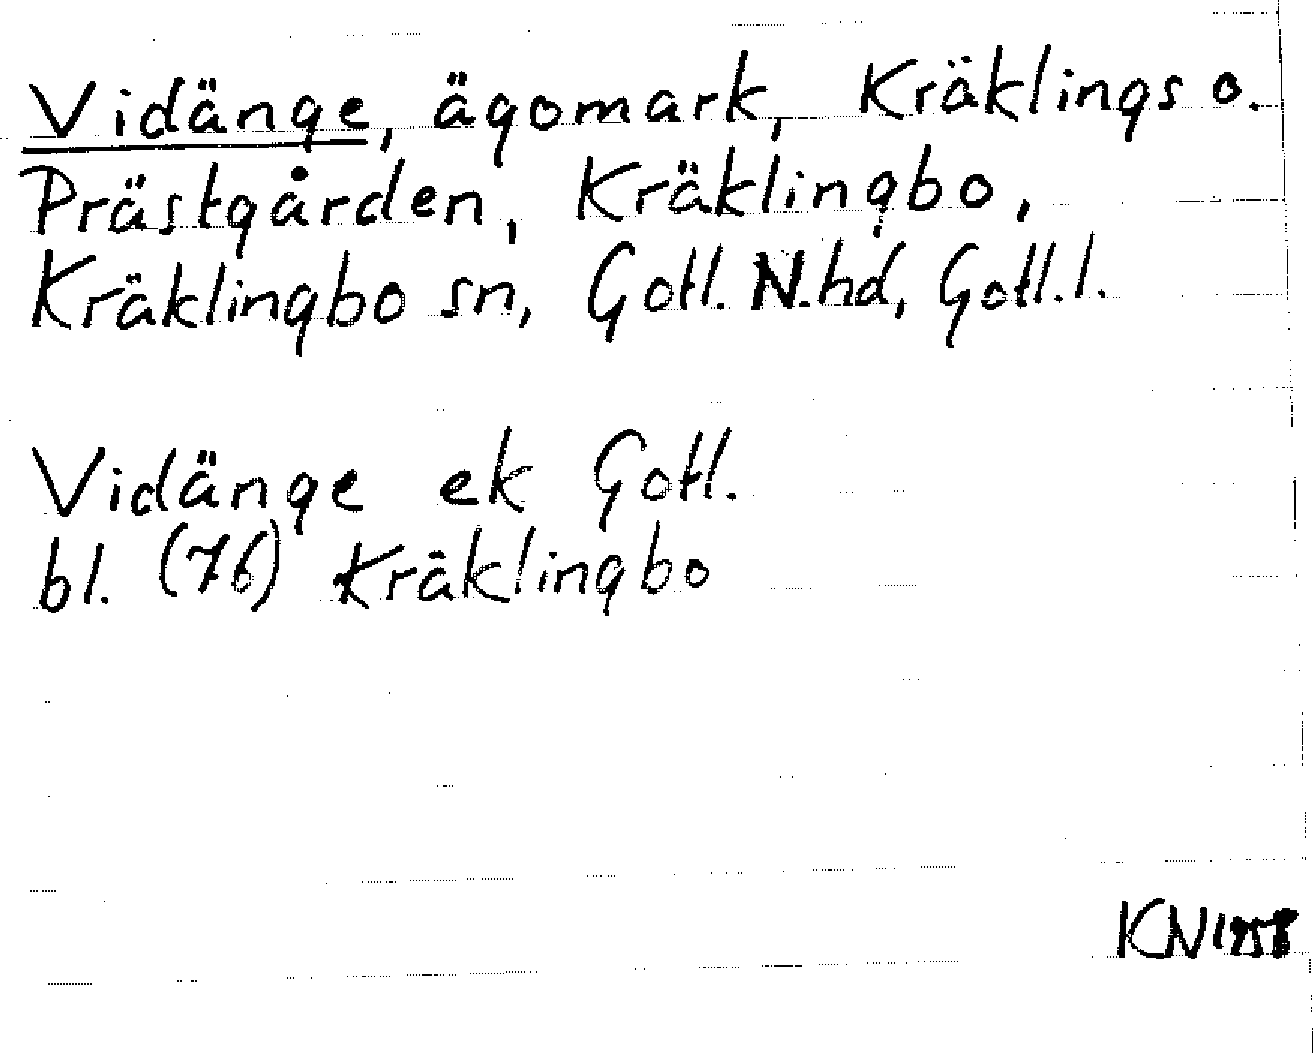 Vidänge, ägomark, Kräklings o.
Prästgården, Kräklingbo,
Kräklingbo sn, Gotl. N.hd, Gotl.l.
Vidänge ek Gotl.
bl. (76) Kräklingbo
KN 1958